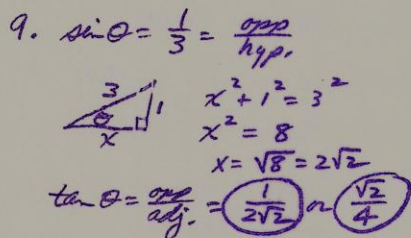 9. sin θ = 1/3 = opp/hyp.
3
1
θ
x
x² + 1² = 3²
x² = 8
x = √8 = 2√2
tan θ = opp/adj. = 1/(2√2) or √2/4